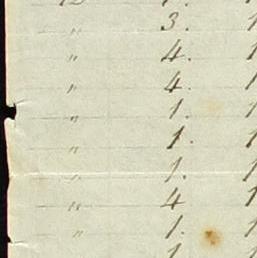 12 1. 1
" 3. 1
" 4. 1
" 4. 1
" 1. 1
" 1. 1
" 1. 1
" 4 1
" 1. 1
1 1